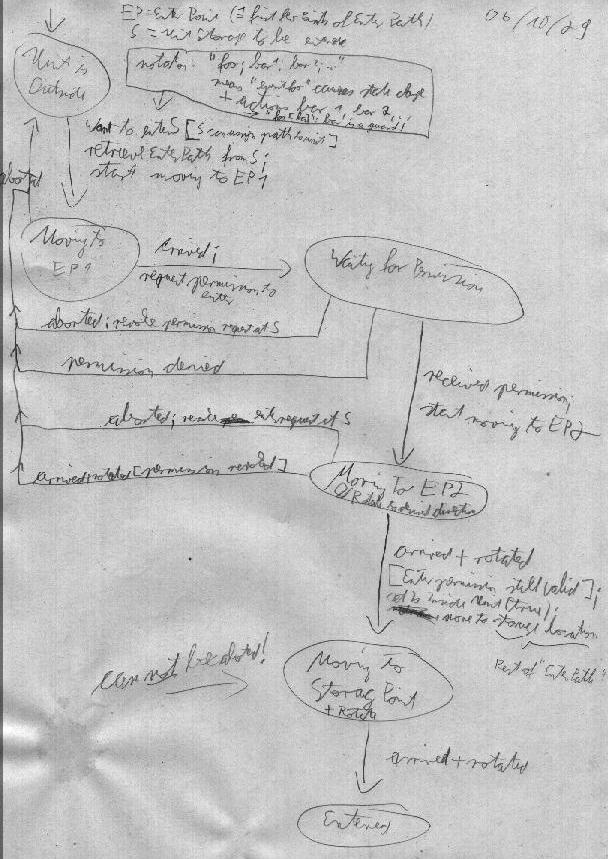 EP = Enter Point (= first two points of Enter Path)
06/10/29
S = Unit Storage to be entered
notation: "foo; bar1, bar2, ..."
means "event foo" causes state change
+ actions bar 1, bar 2,
Unit is
Outside
want to enter S [S can assign path to unit]
retrieve Enter Path from S;
start moving to EP1
aborted
Moving to
EP1
arrived;
request permission to
enter
Waiting for Permission
aborted; revoke permission request at S
permission denied
received permission;
start moving to EP2
aborted; revoke enter request at S
arrived+rotated [permission revoked]
Moving To EP2
arrived + rotated
[Enter permission still valid];
set is inside Unit (true);
move to storage location
Part of "Enter Path"
cannot be aborted!
Moving to
Storage Point
+ Rotate
arrived + rotated
Entered